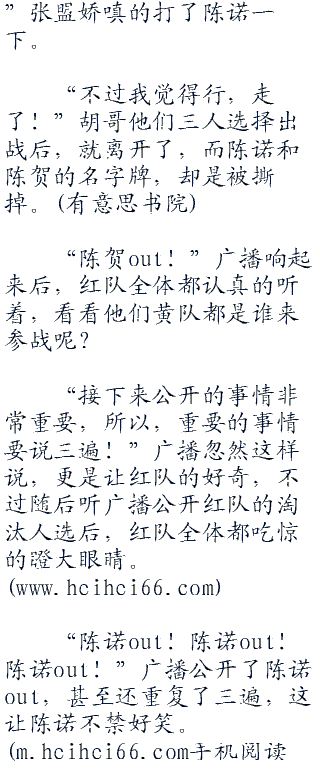 ”张盟娇嗔的打了陈诺一
下。
“不过我觉得行，走
了！”胡哥他们三人选择出
战后，就离开了，而陈诺和
陈贺的名字牌，却是被撕
掉。(有意思书院)
“陈贺out！”广播响起
来后，红队全体都认真的听
着，看看他们黄队都是谁来
参战呢？
“接下来公开的事情非
常重要，所以，重要的事情
要说三遍！”广播忽然这样
说，更是让红队的好奇，不
过随后听广播公开红队的淘
汰人选后，红队全体都吃惊
的瞪大眼睛。
(www.hcihci66.com)
“陈诺out！陈诺out！
陈诺out！”广播公开了陈诺
out，甚至还重复了三遍，这
让陈诺不禁好笑。
(m.hcihci66.com手机阅读